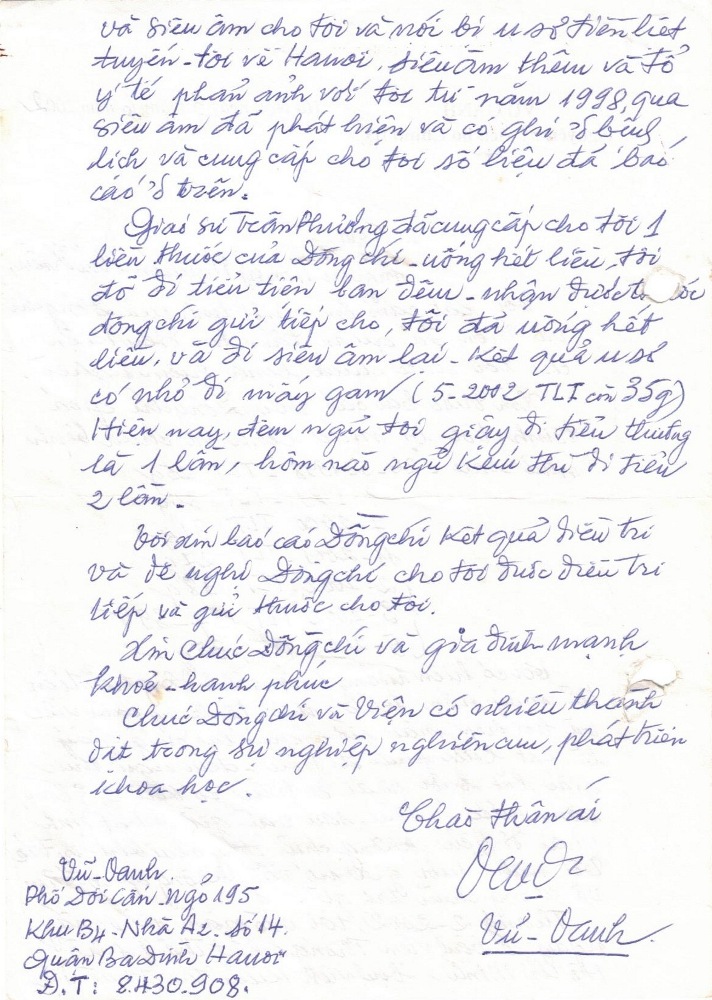 và siêu âm cho tôi và nói bị u sơ tiền liệt
tuyến - tôi về Hanoi, siêu âm thêm và tổ
y tế phản ánh với tôi từ năm 1998, qua
siêu âm đã phát hiện và có ghi ở bệnh
lịch và cung cấp cho tôi số liệu đã báo
cáo ở trên.
Giáo sư Trần Phương đã cung cấp cho tôi 1
liều thuốc của Đồng chí - uống hết liều, tôi
đỡ đi tiểu tiện ban đêm - nhận được
đồng chí gửi tiếp cho, tôi đã uống hết
liều, và đi siêu âm lại - Kết quả u sơ
có nhỏ đi mấy gam (5-2002 TLT còn 35g)
Hiện nay, đêm ngủ tôi giạy đi tiểu thường
là 1 lần, hôm nào ngủ kém thì đi tiểu
2 lần.
Tôi xin báo cáo Đồng chí kết quả điều trị
và đề nghị Đồng chí cho tôi được điều trị
tiếp và gửi thuốc cho tôi.
Xin chúc Đồng chí và gia đình mạnh
khoẻ - hạnh phúc
Chúc Đồng chí và Viện có nhiều thành
đạt trong sự nghiệp nghiên cứu, phát triển
khoa học.
Chào thân ái
Vũ - Oanh.
Vũ - Oanh.
Phố Đội Cấn - ngõ 195
Khu B4 - Nhà A2 - Số 14.
Quận Ba Đình Hanoi
Đ.T: 8.430.908.